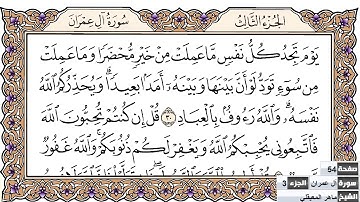 سورة آل عمران الجزء الثالث
يوم تجد كل نفس ما عملت من خير محضرا وما عملت
من سوء تود لو أن بينها وبينه أمدا بعيدا ويحذركم الله
نفسه والله رءوف بالعباد ٣٠ قل إن كنتم تحبون الله
فاتبعوني يحببكم الله ويغفر لكم ذنوبكم والله غفور
صفحة 54
سورة آل عمران الجزء 3
الشيخ ماهر المعيقلي